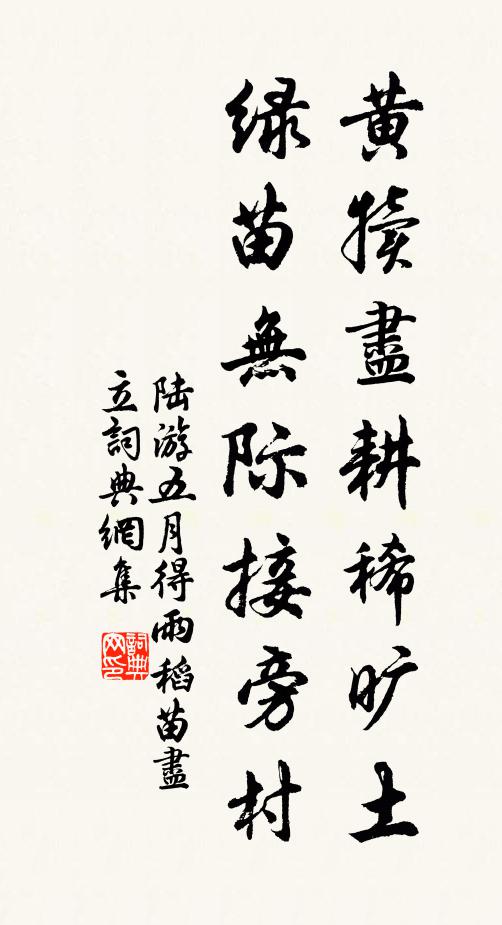 黄犊盡耕稀旷土
绿苗無际接旁村
陆游五月得雨稻苗盡
立詞典網集
詞典
网印